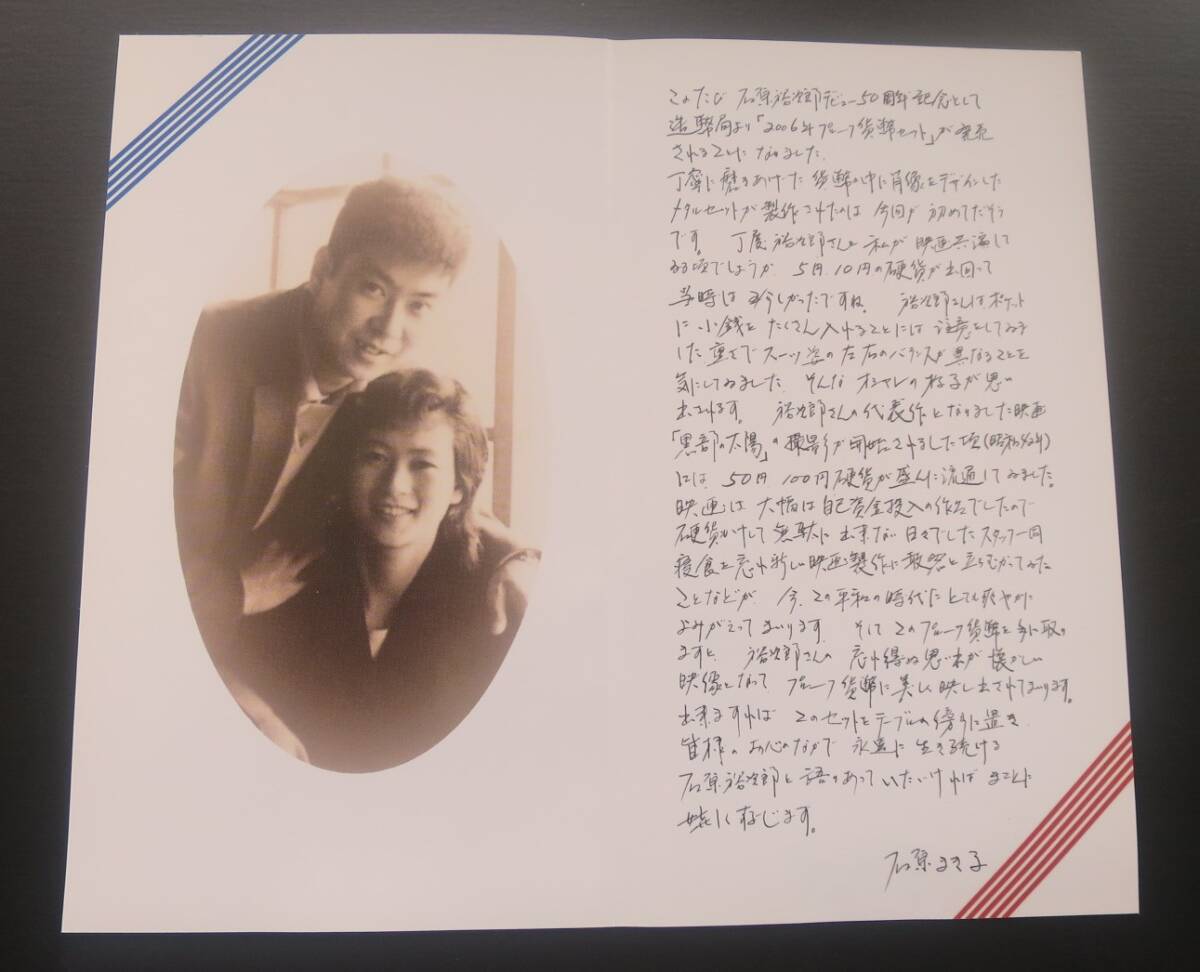 このたび 石原裕次郎デビュー50周年記念として
造幣局より「2006年プルーフ貨幣セット」が発売
されることになりました。
丁寧に磨きあげた 貨幣の中に肖像をデザインした
メダルセットが製作されたのは 今回が 初めてだそう
です。 丁度 裕次郎さんと 私が 映画共演して
いる頃でしょうか 5円、10円の硬貨が出回って
当時は 珍しかったですね。 裕次郎さんはポケット
に 小銭を たくさん入れることには 注意をしていま
した 重さで スーツ姿の左右のバランスが異なることを
気にしていました。そんな オシャレの様子が思い
出されます。 裕次郎さんの代表作となりました映画
「黒部の太陽」の 撮影が開始されました頃(昭和42年)
には、50円 100円硬貨が盛んに流通していました。
映画は 大幅な自己資金投入の作品でしたので
硬貨 して 無駄に 出来ない日々でした スタッフ一同
寝食を忘れ 新しい映画製作に敢然と立ちむかっていた
ことなどが 今、この平和の時代に とても爽やかに
よみがえって まいります。 そして このプルーフ貨幣を手に取り
ますと、 裕次郎さんの 忘れ得ぬ思い出が 懐かしい
映像となって プルーフ貨幣に美しく映し出されてまいります。
出来ますれば このセットをテーブルの傍らに置き、
皆様の お心のなかで 永遠に 生き続ける
石原裕次郎と 語りあって いただければ まことに
嬉しく存じます。
石原まき子